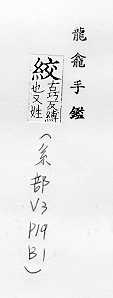 龍龕手鑑
絞古巧反縛
也又姓
(糸部
V3
P19
B1)